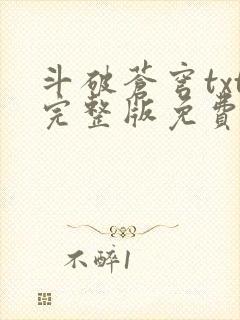 斗破蒼穹txt
完整版免費
不醉1